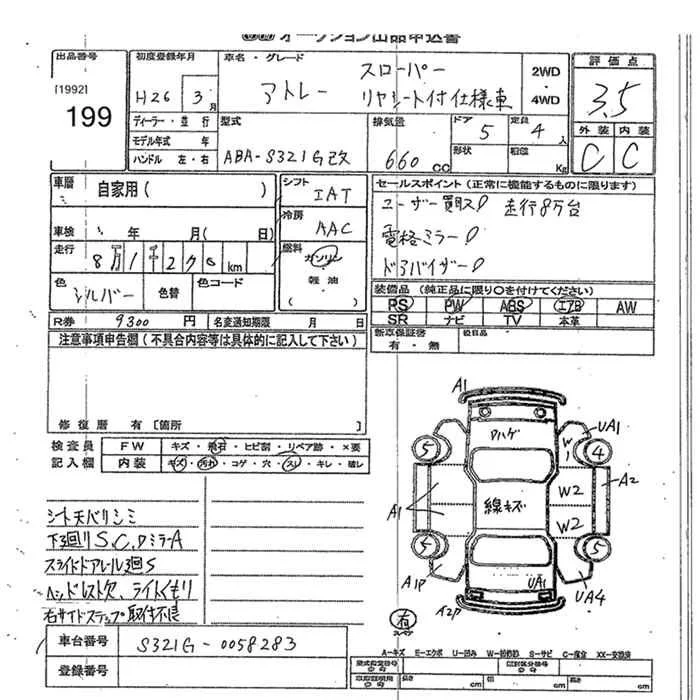 オークション出品申込書
出品番号
[1992]
199
初度登録年月
H26 3月
ディーラー・並行
モデル年式 年
ハンドル 左・右
車名・グレード
アトレー スローパー
リヤシート付仕様車
2WD
・
4WD
型式
ABA-S321G改
排気量
660 CC
ドア 5
定員 4人
形状
積載 Kg
評価点
3.5
外装 内装
C C
車歴 自家用( )
車検 年 月( 日)
走行 km
色 シルバー
色替
色コード
シフト IAT
冷房 AAC
燃料
ガソリン
・
軽油
R券 9300円 名変通知期限 月 日
セールスポイント(正常に機能するものに限ります)
ユーザー買 走行8万台
電格ミラー
ドアバイザー
装備品(純正品に限り○を付けてください)
RS PW ABS エアB AW
SR ナビ TV 本革
新車保証書
有・無
注意事項申告欄(不具合内容等は具体的に記入して下さい)
修復歴 有[箇所 ]
検査員
記入欄
FW キズ・飛石・ヒビ割・リペア跡・×要
内装 キズ・汚れ・コゲ・穴・スレ・キレ・破レ
シート天バリシミ
下回りS、C、Dミラー A
スライドドアレール3回S
ヘッドレスト欠、ライトくもり
右サイドステップ取付不良
A1
UA1
ハゲ
W1
5
4
A1
W2
A2
線キズ
W2
5
5
A1P
UA1
UA4
A2P
有
スペア
A-キズ E-エクボ U-凹み S-サビ C-腐食 XX-交換済
車台番号 S321G-0058283
登録番号
cm
cm
cm